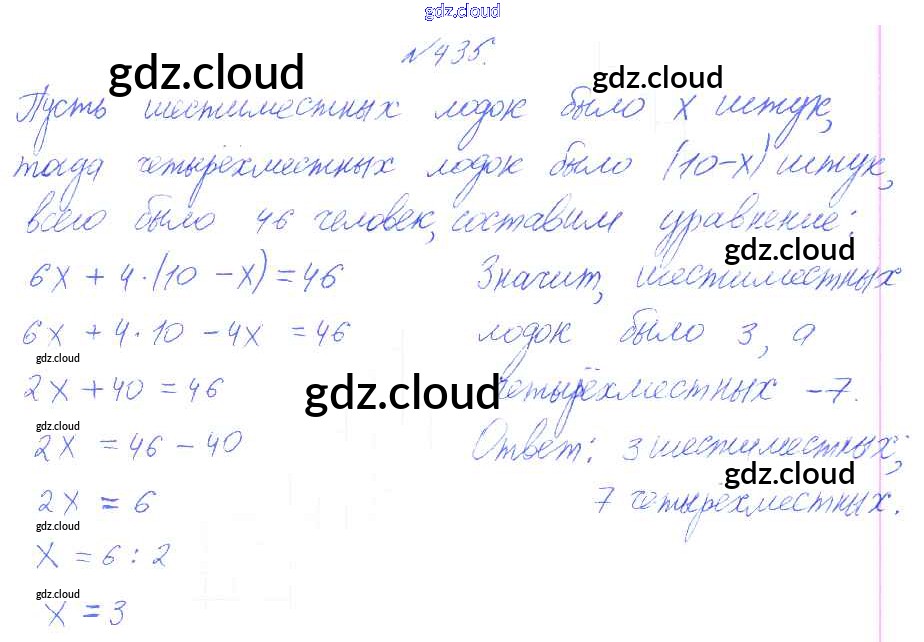 gdz.cloud
№435.
gdz.cloud
gdz.cloud
Пусть шестиместных лодок было x штук,
тогда четырёхместных лодок было (10-x) штук,
всего было 46 человек, составим уравнение:
gdz.cloud
6x + 4·(10 - x) = 46
6x + 4·10 - 4x = 46
gdz.cloud
2x + 40 = 46
gdz.cloud
gdz.cloud
2x = 46 - 40
2x = 6
gdz.cloud
x = 6 : 2
gdz.cloud
x = 3
Значит, шестиместных
лодок было 3, а
четырёхместных -7.
Ответ: 3 шестиместных;
gdz.cloud
7 четырёхместных.